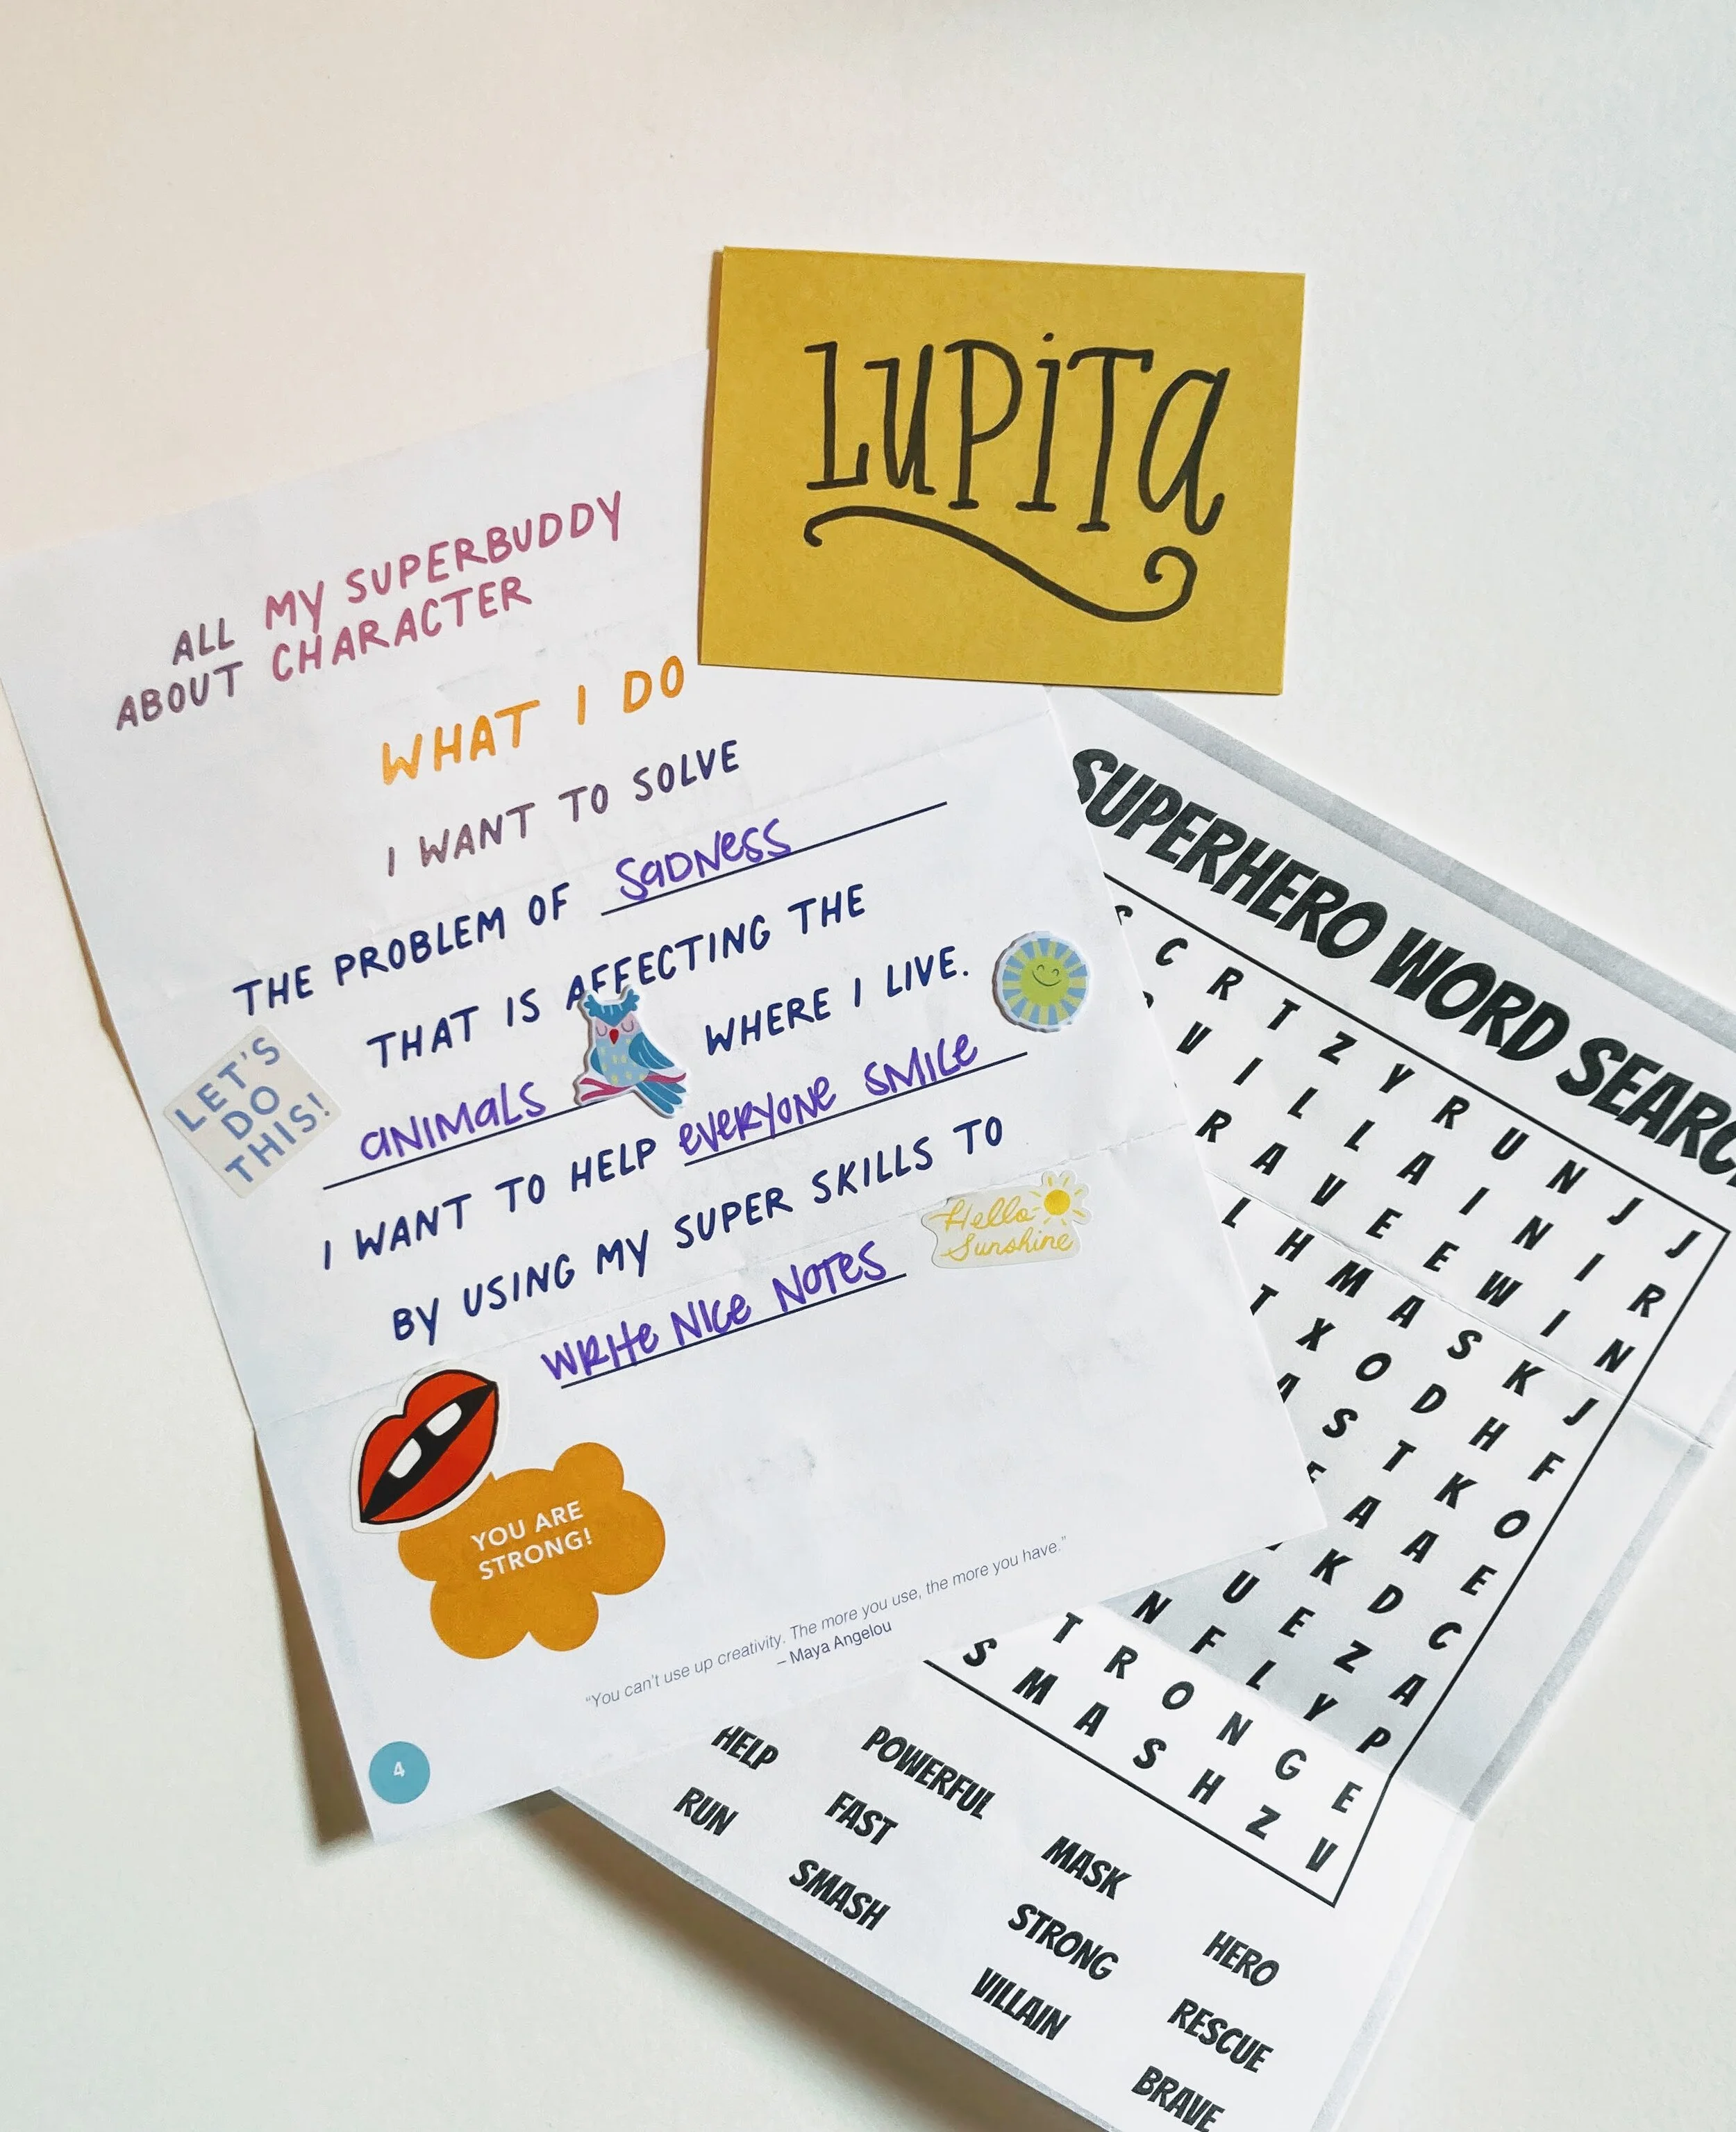 LUPITA
ALL MY SUPERBUDDY
ABOUT CHARACTER
WHAT I DO
I WANT TO SOLVE
THE PROBLEM OF SADNESS
THAT IS AFFECTING THE
ANIMALS WHERE I LIVE.
I WANT TO HELP EVERYONE SMILE
BY USING MY SUPER SKILLS TO
WRITE NICE NOTES
LET'S
DO
THIS!
Hello
Sunshine
YOU ARE
STRONG!
"You can't use up creativity. The more you use, the more you have."
– Maya Angelou
4
SUPERHERO WORD SEARC
C R T Z Y R U N J J
V I L L A I N I R
R A V E E W I N
L H M A S K J
T X O D H F
S T K O
A A E
K D C
U E Z A
N F L Y P
T R O N G E
S M A S H Z V
HELP POWERFUL MASK HERO
RUN FAST STRONG RESCUE
SMASH VILLAIN BRAVE